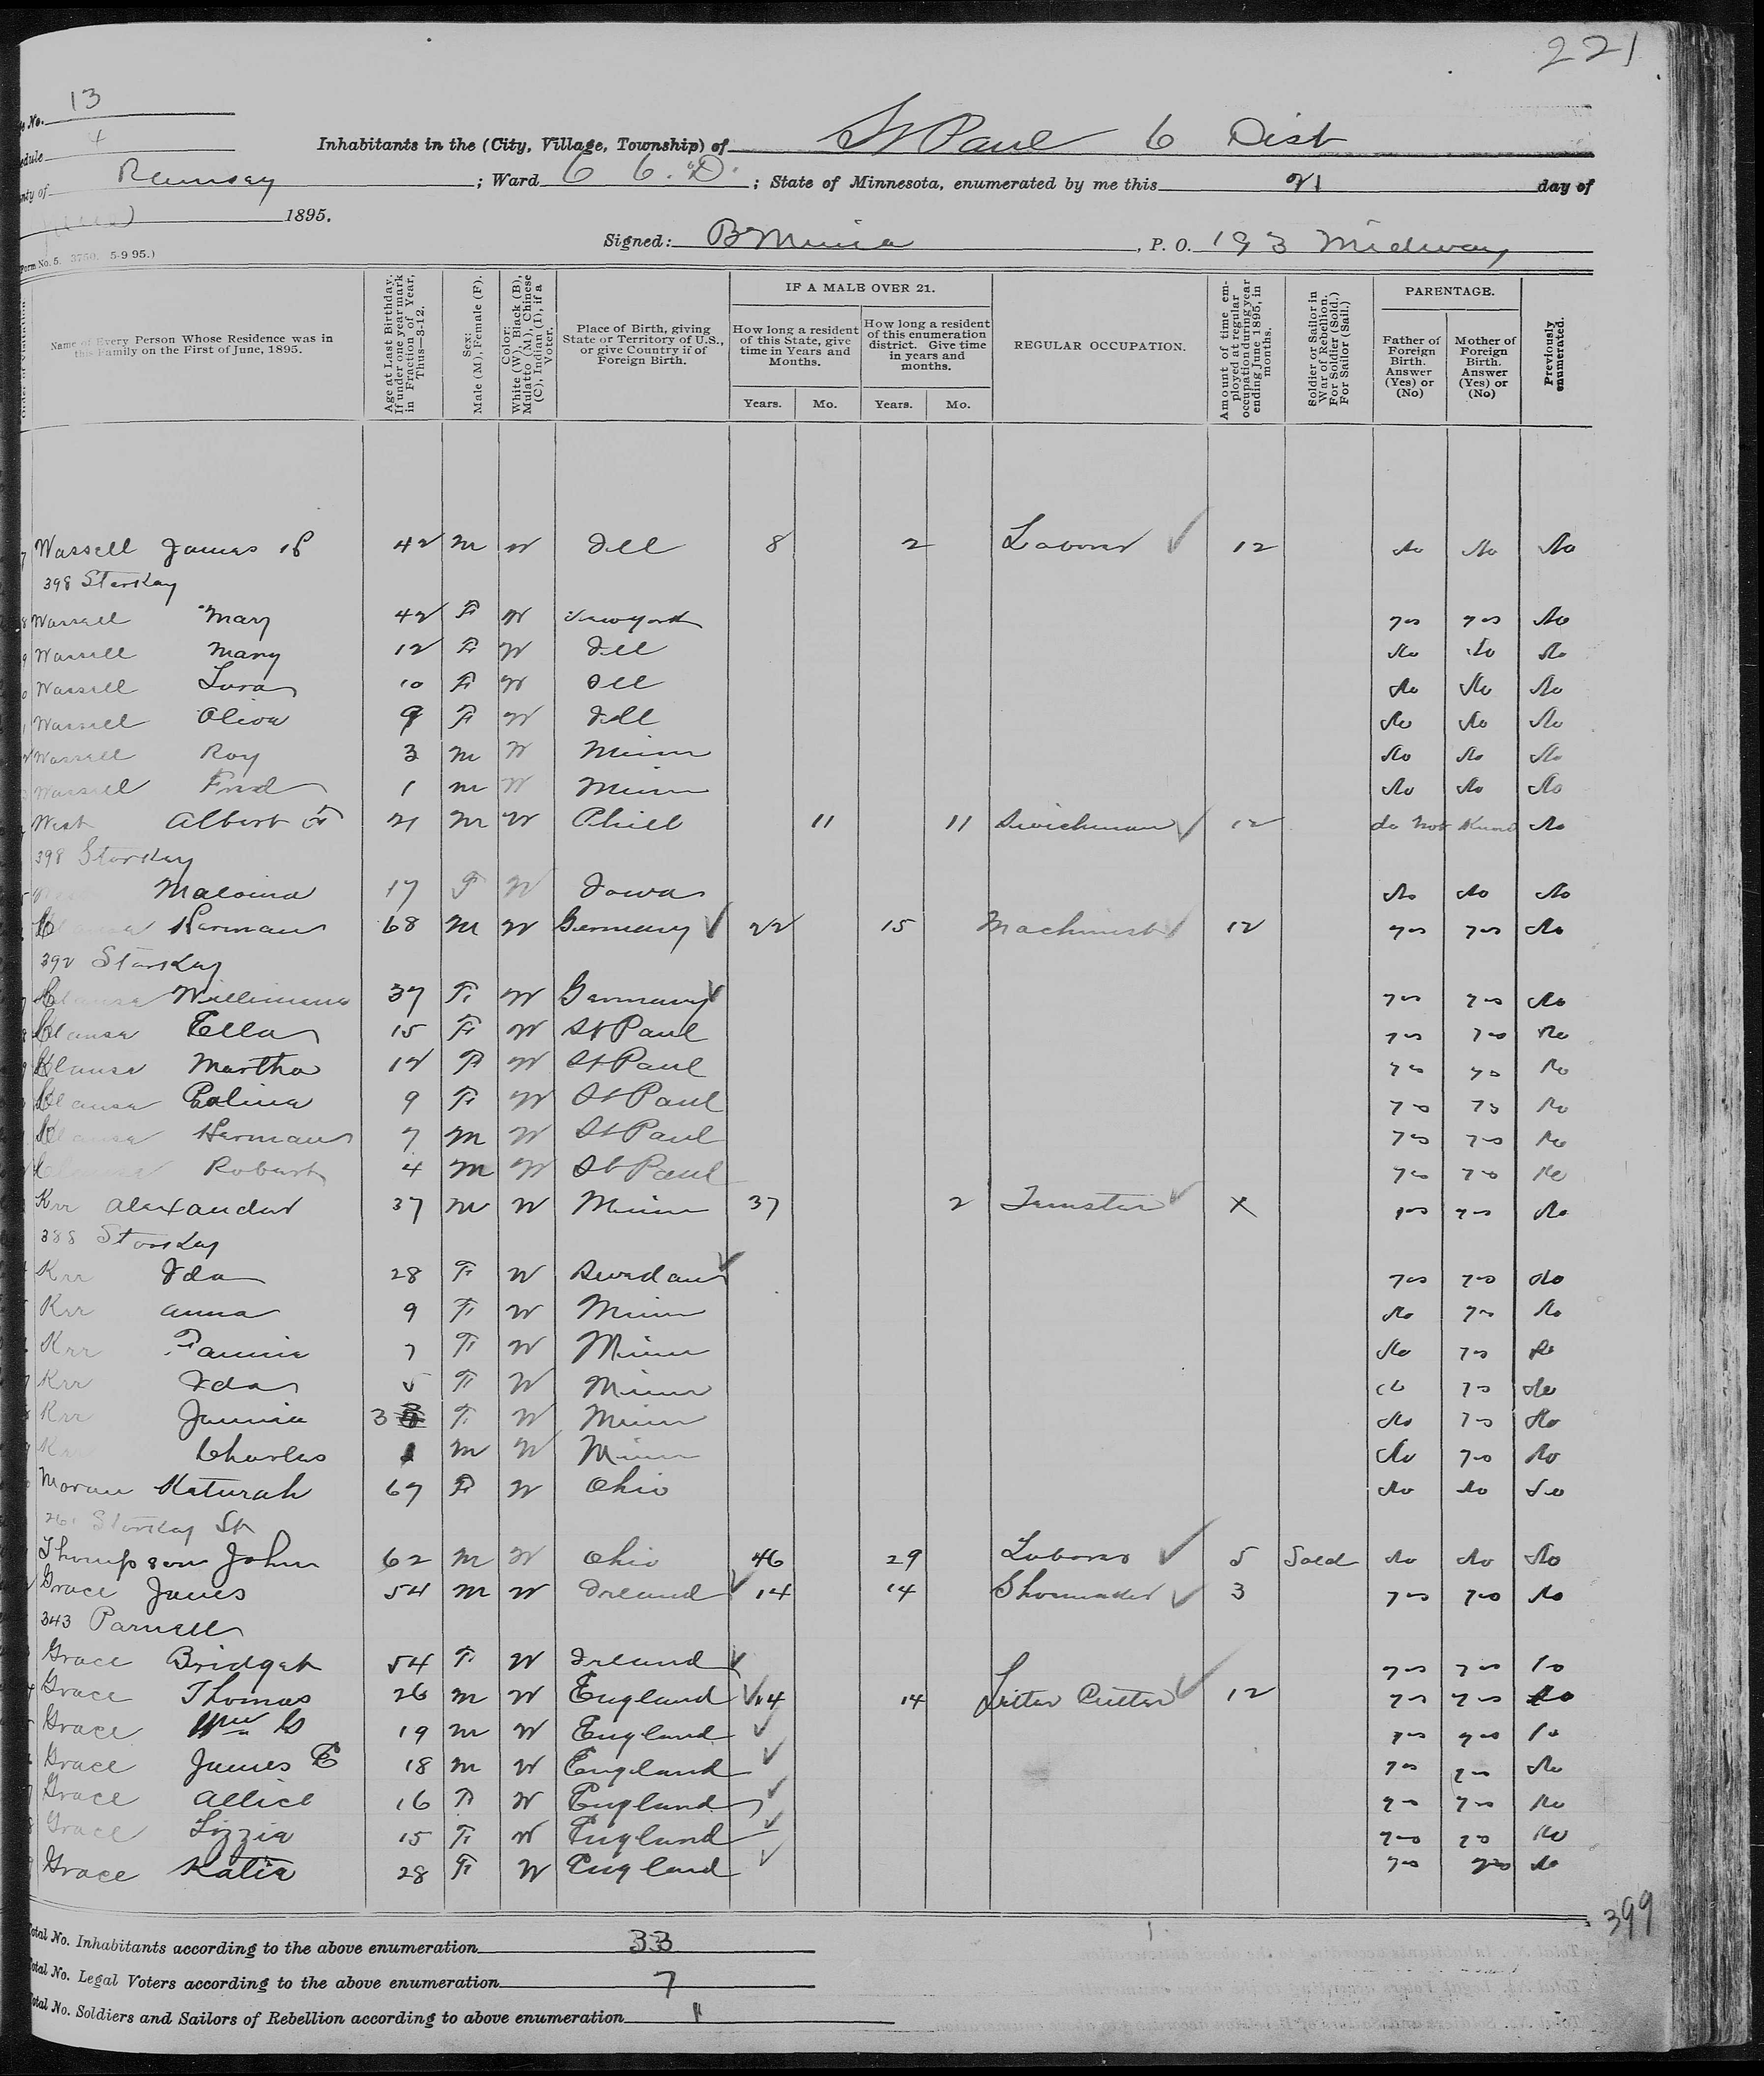 221
No. 13
edule 4
Inhabitants in the (City, Village, Township) of St Paul 6 Dist
nty of Ramsey ; Ward 6 6. D. ; State of Minnesota, enumerated by me this 21 day of
1895.
Signed: , P. O. 193 Midway
Form No. 5. 3750. 5-9 95.)
Name of Every Person Whose Residence was in this Family on the First of June, 1895.
Age at Last Birthday. If under one year mark in Fraction of Year, Thus—3-12.
Sex: Male (M), Female (F).
Color: White (W), Black (B), Mulatto (M), Chinese (C), Indian (I), if a Voter.
Place of Birth, giving State or Territory of U.S., or give Country if of Foreign Birth.
IF A MALE OVER 21.
How long a resident of this State, give time in Years and Months.
How long a resident of this enumeration district. Give time in years and months.
Years. Mo. Years. Mo.
REGULAR OCCUPATION.
Amount of time employed at regular occupation during year ending June 1895, in months.
Soldier or Sailor in War of Rebellion. For Soldier (Sold.) For Sailor (Sail.)
PARENTAGE.
Father of Foreign Birth. Answer (Yes) or (No)
Mother of Foreign Birth. Answer (Yes) or (No)
Previously enumerated.
Wassell James 42 M W Ill 8 2 Laborer ✓ 12 No No No
398 Starkay
Wassell Mary 42 F W Newyork yes yes No
Wassell Mary 12 F W Ill No No No
Wassell Lura 10 F W Ill No No No
Wassell Olive 9 F W Ill No No No
Wassell Roy 3 M W Minn No No No
Wassell Fred 1 M W Minn No No No
West Albert F 21 M W 11 11 Swichman ✓ 12 do not Know No
398 Starkay
Malvina 17 F W Iowa No No No
Herman 68 M W Germany ✓ 22 15 Machinist ✓ 12 yes yes No
392 Starkay
Clause Willimena 37 F W Germany ✓ yes yes No
Clause Ella 15 F W St Paul yes yes No
Clause Martha 12 F W St Paul yes yes No
Clause 9 F W St Paul yes yes No
Clause Herman 7 M W St Paul yes yes No
Clause Robert 4 M W St Paul yes yes No
Krr Alexander 37 M W Minn 37 2 Temster ✓ x yes yes No
388 Starkay
Krr Ida 28 F W Swedan ✓ yes yes No
Krr Anna 9 F W Minn No yes No
Krr Fannie 7 F W Minn No yes No
Krr Ida 5 F W Minn No yes No
Krr Jennie 3 F W Minn No yes No
Krr Charles 1 M W Minn No yes No
Moran Katurah 67 F W Ohio No No No
261 Starkay St
Thompson John 62 M W Ohio 46 29 Laborer ✓ 5 Sold No No No
Grace James 54 M W Ireland ✓ 14 14 Shoemaker ✓ 3 yes yes No
343 Parnell
Grace Bridget 54 F W Ireland ✓ yes yes No
Grace Thomas 26 M W England ✓ 14 14 Letter Cutter ✓ 12 yes yes No
Grace Wm 19 M W England ✓ yes yes No
Grace James E 18 M W England ✓ yes yes No
Grace Allice 16 F W England ✓ yes yes No
Grace Lizzie 15 F W England ✓ yes yes No
Grace Katie 28 F W England ✓ yes yes No
399
Total No. Inhabitants according to the above enumeration 33
Total No. Legal Voters according to the above enumeration 7
Total No. Soldiers and Sailors of Rebellion according to above enumeration 1